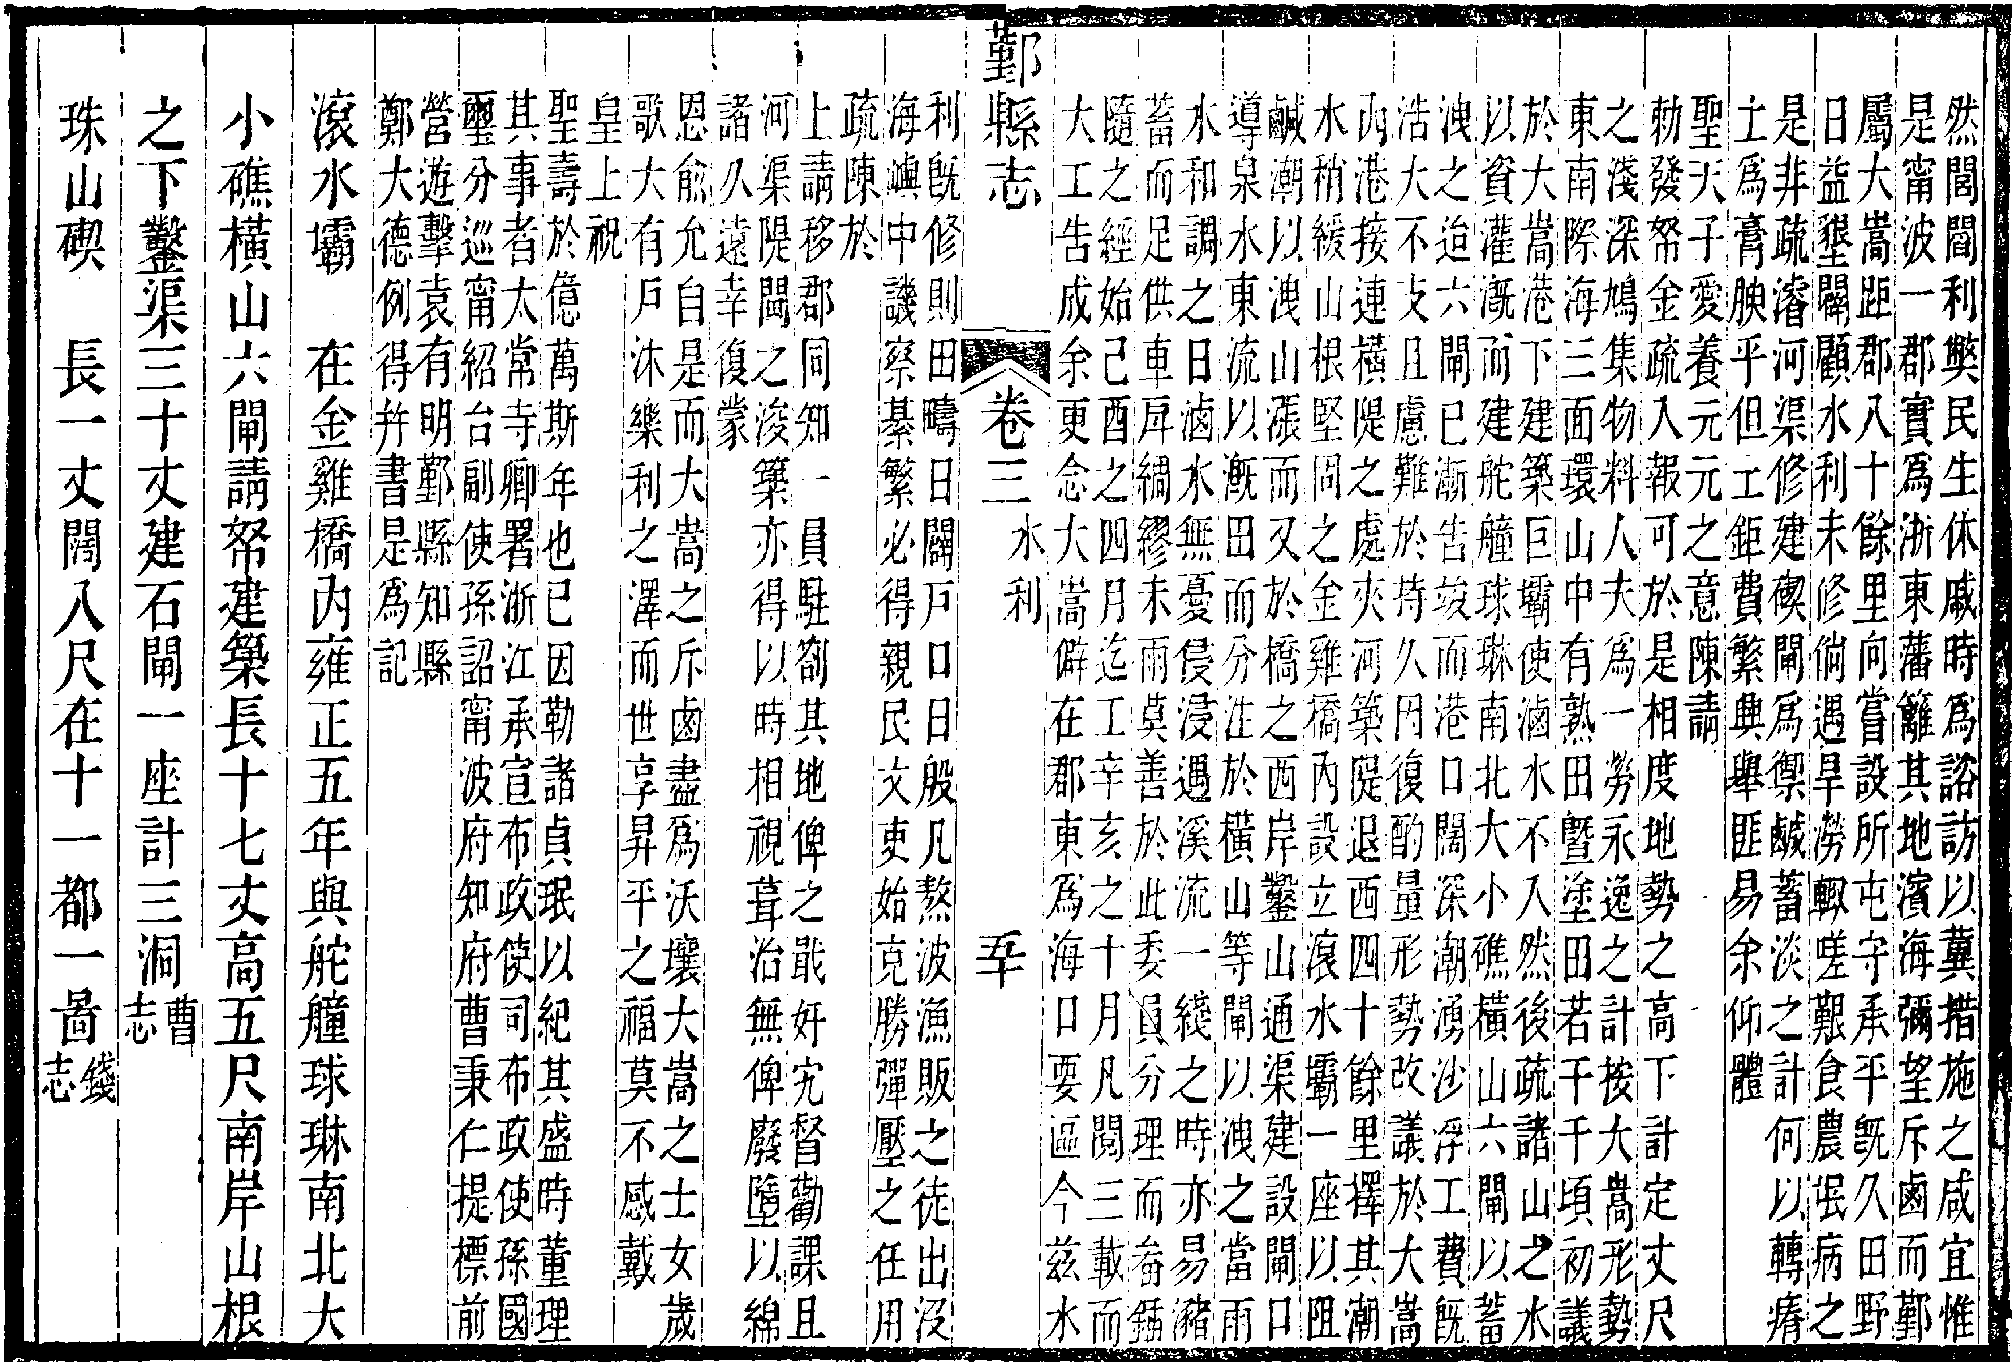 然閭閻利獘民生休戚時爲諮訪以冀措施之咸宜惟
是甯波一郡實爲浙東藩籬其地濱海彌望斥鹵而鄞
屬大嵩距郡八十餘里向嘗設所屯守承平旣久田野
日益墾闢顧水利未修倘遇旱澇輙嗟艱食農氓病之
是非疏濬河渠修建碶閘爲禦鹹蓄淡之計何以轉瘠
土爲膏腴乎但工鉅費繁興舉匪易余仰體
聖天子愛養元元之意陳請
勅發帑金疏入報可於是相度地勢之高下計定丈尺
之淺深鳩集物料人夫爲一勞永逸之計按大嵩形勢
東南際海三面環山中有熟田暨塗田若干千頃初議
於大嵩港下建築巨壩使滷水不入然後疏諸山之水
以資灌漑而建舵艟球琳南北大小礁橫山六閘以蓄
洩之迨六閘已漸告竣而港口闊深潮湧沙浮工費旣
浩大不支且慮難於持久因復酌量形勢改議於大嵩
內港接連橫隄之處夾河築隄退西四十餘里擇其潮
水稍緩山根堅固之金雞橋內設立滾水壩一座以阻
鹹潮以洩山漲而又於橋之西岸鑿山通渠建設閘口
導泉水東流以漑田而分注於橫山等閘以洩之當雨
水和調之日滷水無憂侵浸遇溪流一綫之時亦易瀦
蓄而足供車戽綢繆未雨莫善於此委員分理而畚鍤
隨之經始己酉之四月迄工辛亥之十月凡閱三載而
大工告成余更念大嵩僻在郡東爲海口要區今茲水
鄞縣志
卷三
水利
五十
利旣修則田疇日闢戶口日殷凡熬波漁販之徒出沒
海嶼中譏察綦繁必得親民文吏始克勝彈壓之任用
疏陳於
上請移郡同知一員駐劄其地俾之戢奸宄督勸課且
河渠隄閘之浚築亦得以時相視葺治無俾廢墮以綿
諸久遠幸復蒙
恩俞允自是而大嵩之斥鹵盡爲沃壤大嵩之士女歲
歌大有戶沐樂利之澤而世享昇平之福莫不感戴
皇上祝
聖壽於億萬斯年也已因勒諸貞珉以紀其盛時董理
其事者太常寺卿署浙江承宣布政使司布政使孫國
璽分巡甯紹台副使孫詔甯波府知府曹秉仁提標前
營遊擊袁有明鄞縣知縣
鄭大德例得幷書是爲記
滾水壩　在金雞橋內雍正五年與舵艟球琳南北大
小礁橫山六閘請帑建築長十七丈高五尺南岸山根
之下鑿渠三十丈建石閘一座計三洞曹志
珠山碶　長一丈闊八尺在十一都一啚錢志